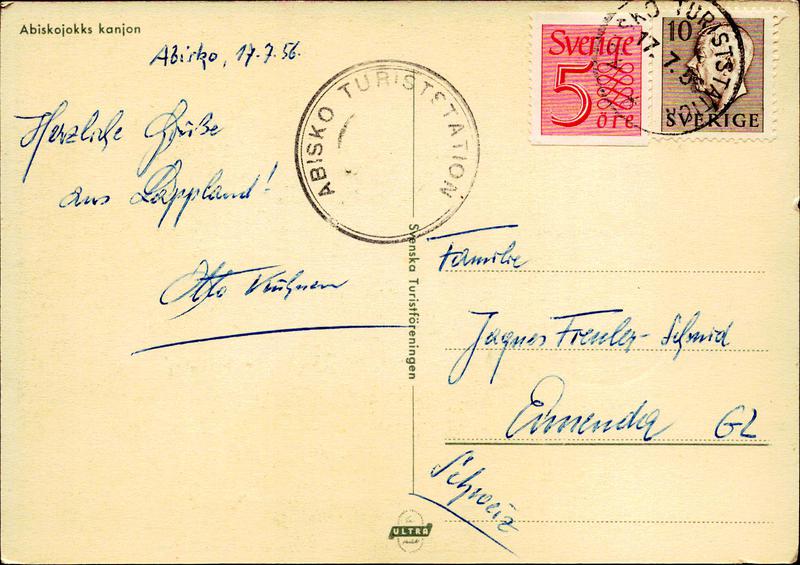 Abiskojokks kanjon
Abisko, 17.7.56.
Herzliche Grüße
aus Lappland!
Otto
ABISKO TURISTSTATION
Sverige
5
öre
10
SVERIGE
ABISKO TURISTSTATION
17.7.56
Svenska Turistföreningen
Familie
Jaques Freuler-Schmid
Ennenda GL
Schweiz
ULTRA